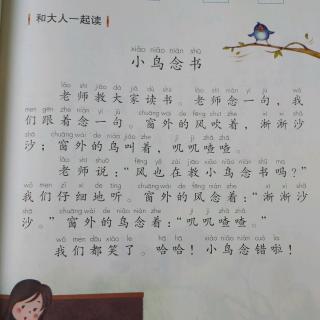 和大人一起读
xiǎo niǎo niàn shū
小鸟念书
lǎo shī jiāo dà jiā dú shū lǎo shī niàn yí jù wǒ
老师教大家读书。老师念一句，我
men gēn zhe niàn yí jù chuāng wài de fēng chuī zhe xī xī shā
们跟着念一句。窗外的风吹着，淅淅沙
shā chuāng wài de niǎo jiào zhe jī jī zhā zhā
沙；窗外的鸟叫着，叽叽喳喳。
lǎo shī shuō fēng yě zài jiāo xiǎo niǎo niàn shū ma
老师说：“风也在教小鸟念书吗？”
wǒ men zǐ xì de tīng chuāng wài de fēng niàn zhe xī xī shā
我们仔细地听。窗外的风念着：“淅淅沙
shā chuāng wài de niǎo niàn zhe jī jī zhā zhā
沙。”窗外的鸟念着：“叽叽喳喳。”
wǒ men dōu xiào le hā hā xiǎo niǎo niàn cuò la
我们都笑了。哈哈！小鸟念错啦！